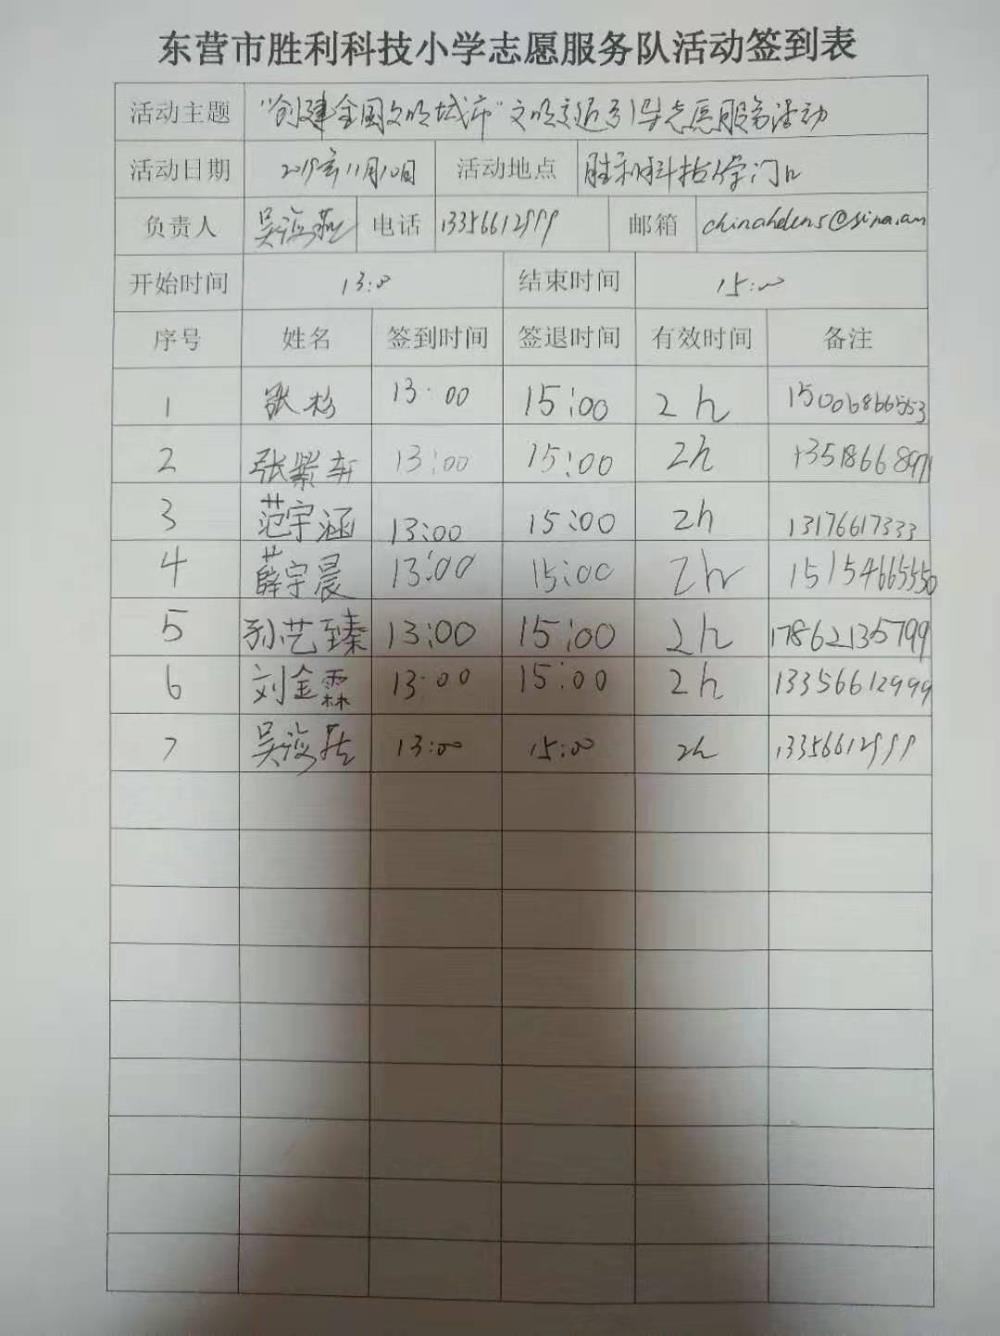 东营市胜利科技小学志愿服务队活动签到表
活动主题 “创建全国文明城市”文明交通引导志愿服务活动
活动日期 2019年11月10日 活动地点 胜利科技小学门口
负责人 吴海燕 电话 13356612999 邮箱 chinahelens@sina.com
开始时间 13:00 结束时间 15:00
序号 姓名 签到时间 签退时间 有效时间 备注
1 张杉 13:00 15:00 2h 15006866553
2 张紫轩 13:00 15:00 2h 1351866897
3 范宇涵 13:00 15:00 2h 13176617333
4 薛宇晨 13:00 15:00 2h 15154665550
5 孙艺臻 13:00 15:00 2h 17862135799
6 刘金霖 13:00 15:00 2h 13356612999
7 吴海燕 13:00 15:00 2h 13356612999